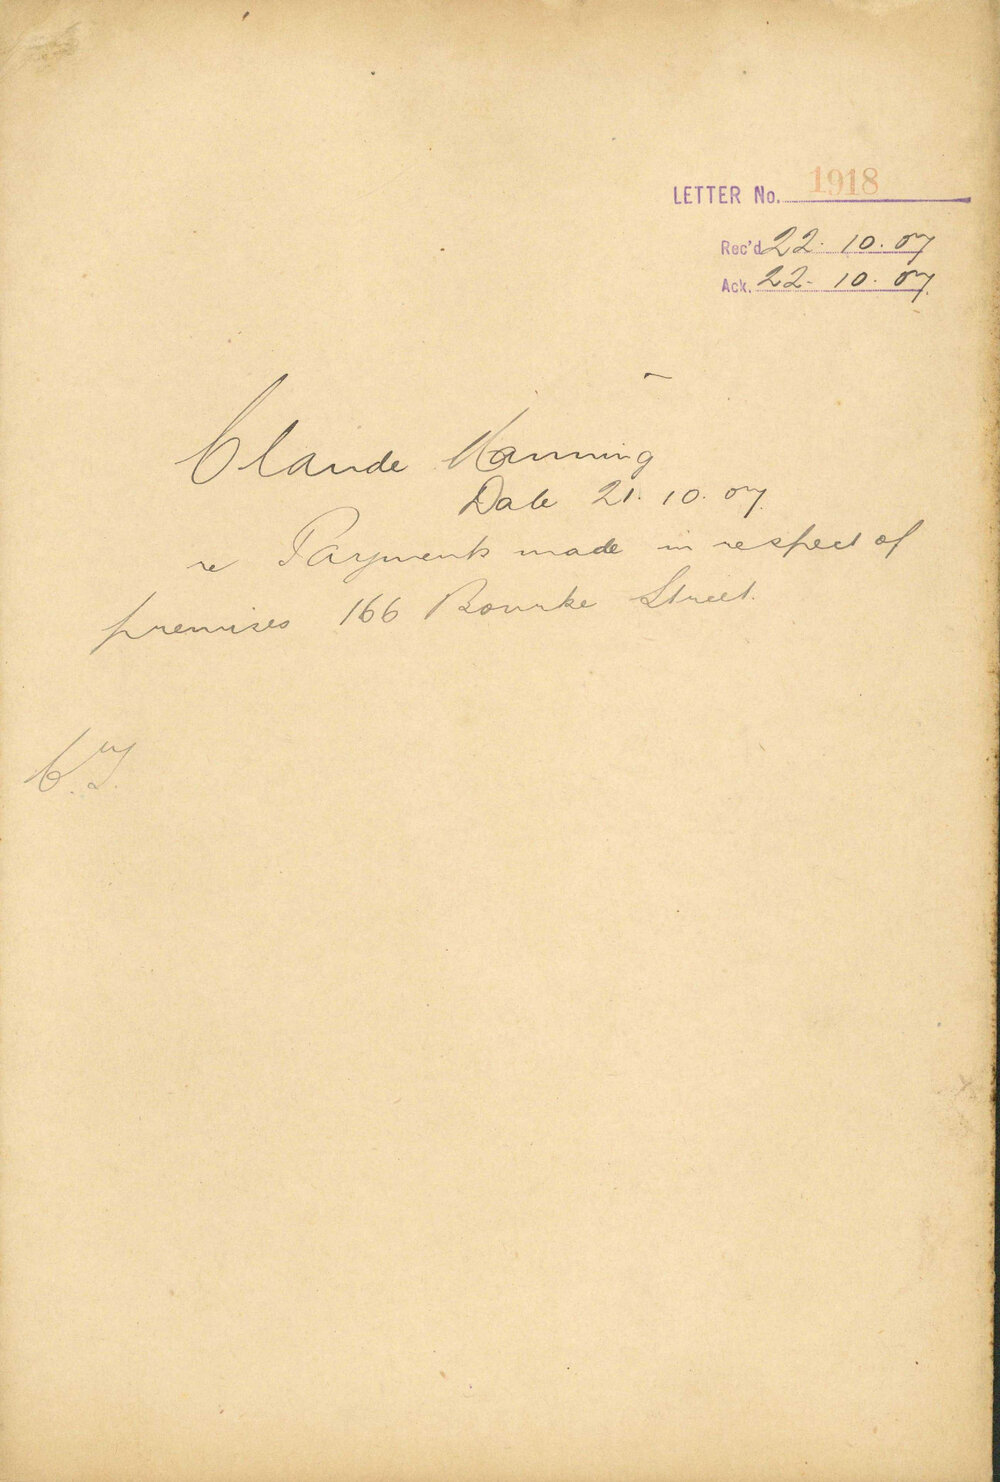 LETTER No. 1918
Rec'd 22. 10. 07
Ack. 22. 10. 07
Claude Manning
Date 21. 10. 07
re Payments made in respect of
premises 166 Bourke Street.